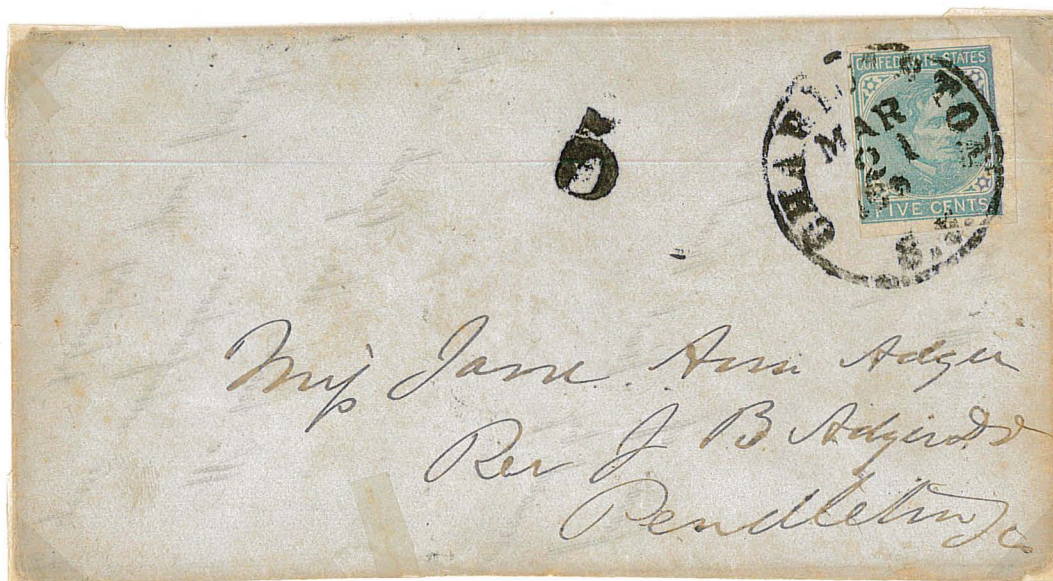 CONFEDERATE STATES
FIVE CENTS
CHARLESTON
MAR
S.C.
5
Miss Jane Ann Adger
Rev J B Adger DD
Pendleton